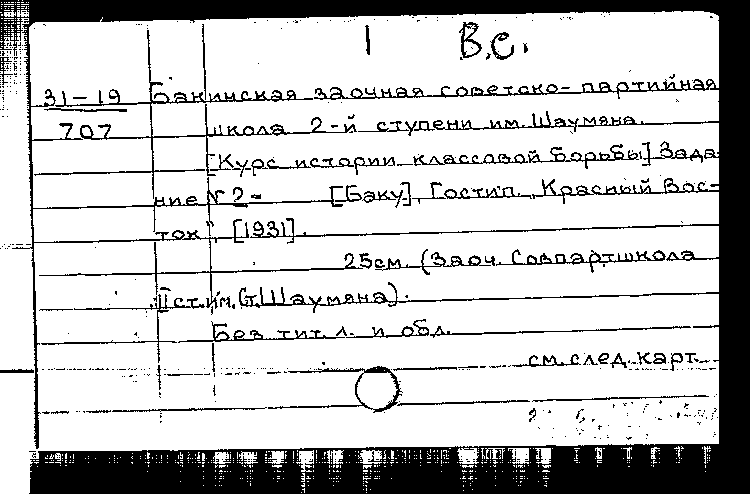 I В.С.
31-19 Бакинская заочная советско-партийная
707 школа 2-й ступени им. Шаумяна.
[Курс истории классовой борьбы] Зада-
ние № 2- [Баку], Гостип. „Красный Вос-
ток", [1931].
25см. (Заоч. Совпартшкола
II ст. им. Ст. Шаумяна).
Без тит. л. и обл.
см. след. карт.